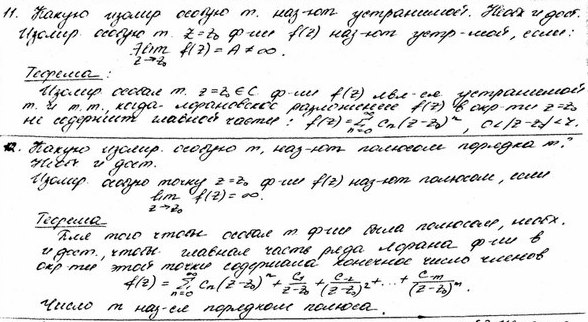 11. Какую изолир. особую т. наз-ют устранимой. Необх и дост.
Изолир. особую т. z=z₀ ф-ии f(z) наз-ют устр-мой, если:
∃lim f(z) = A ≠ ∞.
z→z₀
Теорема:
Изолир. особая т. z=z₀∈C ф-ии f(z) явл-ся устранимой
т. и т.т., когда лорановское разложение f(z) в окр-ти z=z₀
не содержит главной части: f(z)=∑ₙ₌₀^∞ Cₙ(z-z₀)ⁿ, 0<|z-z₀|<r.
12. Какую изолир. особую т. наз-ют полюсом порядка m."
Необх и дост.
Изолир. особую точку z=z₀ ф-ии f(z) наз-ют полюсом, если
lim f(z) = ∞.
z→z₀
Теорема
Для того чтобы особая т. ф-ии была полюсом, необх.
и дост., чтобы главная часть ряда Лорана ф-ии в
окр-ти этой точки содержала конечное число членов
f(z) = ∑ₙ₌₀^∞ Cₙ(z-z₀)ⁿ + C₋₁/(z-z₀) + C₋₂/(z-z₀)² + ... + C₋ₘ/(z-z₀)ᵐ.
Число m наз-ся порядком полюса.